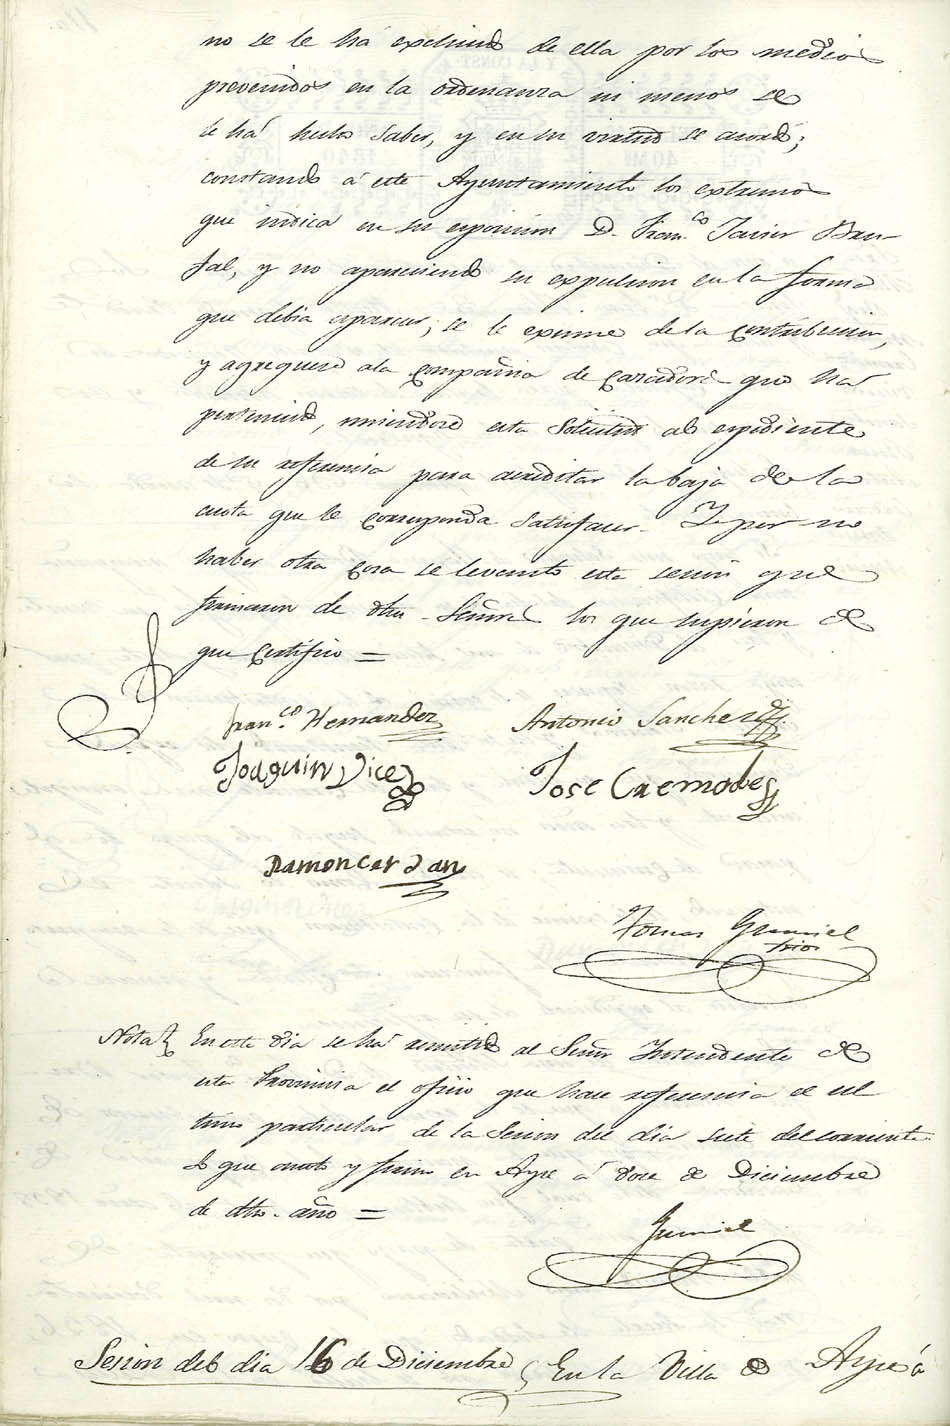 no se le há expelindo de ella por los medios
prevenidos en la ordenanza ni menos se
le há hecho saber, y en su virtud se acordó;
constando á este Ayuntamiento los extremos
que indica en su exposicion D. Fran.co Javier
fal, y no apareciendo su expulsion en la forma
que debia aparecer, se le exime de la contribucion,
y agreguese ala compañia de Cazadores que há
pertenecido, uniendose esta Solicitud al expediente
de su referencia para acreditar la baja de la
cuota que le corresponda satisfacer. Y por no
haber otra cosa se levanto esta sesion que
firmaron de dhos. Señores los que supieron de
que certifico =
Fran.co Hernandez Antonio Sanchez
Joaquin Vice Jose Cremades
Ramon Cerdan
Tomas Gumiel
Srio
Nota En este dia se há remitido al Señor Intendente de
esta Provincia el oficio que hace referencia el ul
timo particular de la Sesion del dia siete del corriente
Lo que anoto y firmo en Aspe á doce de Diciembre
de dho. año =
Gumiel
Sesion del dia 16 de Diciembre En la Villa de Aspe á